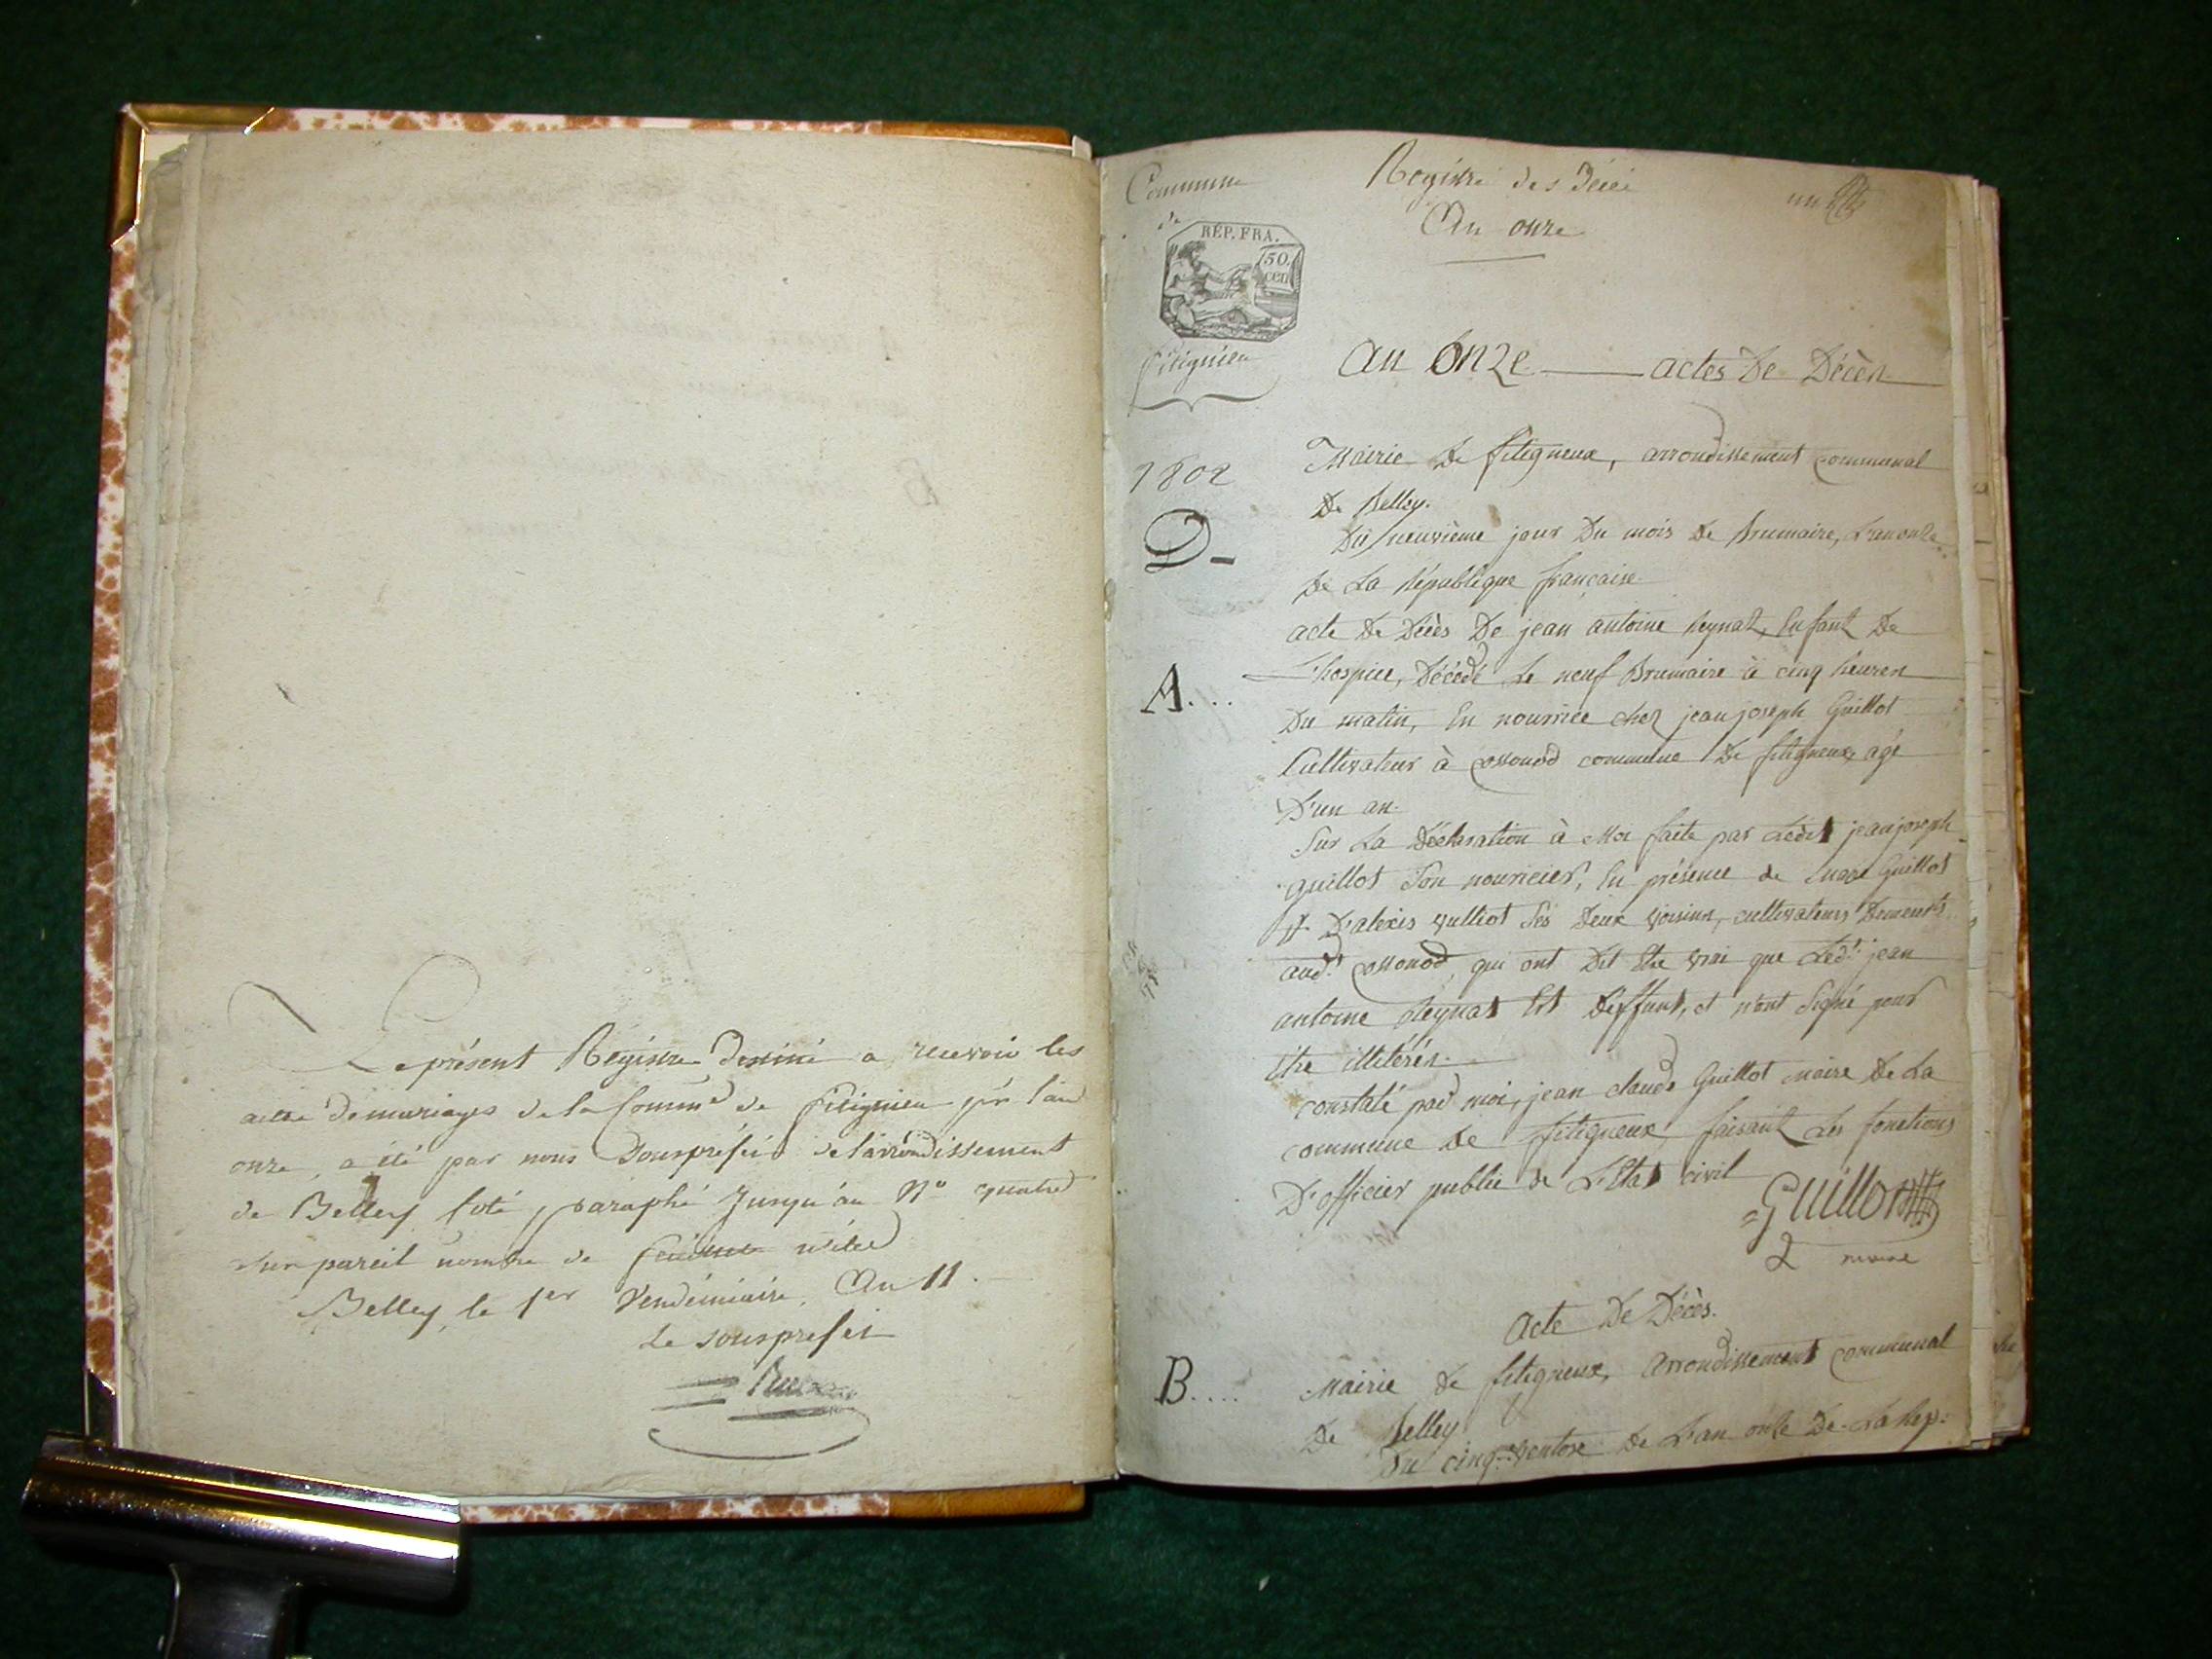 Le présent Registre destiné a recevoir les
actes de mariages de la Comm.e de fitignieu pr. l'an
onze, a été par nous Souspréfet de l'arrondissement
de Belley coté, paraphé jusqu'au N° quatre
sur pareil nombre de
Belley, le 1er Vendémiaire, An 11.
Le souspréfet
Commune Registre des Décès un
de An onze
RÉP. FRA.
50.
cen
fitignieu
An Onze actes De Décès
1802 Mairie De fitigneux, arrondissement communal
De Belley.
D Du neuvième jour Du mois De Brumaire, L'an onze
De La République française.
acte De Décès De jean antoine Reynat, Enfant De
A... L'hospice, Décédé Le neuf Brumaire à cinq heures
Du matin, En nourrice chez jean joseph Guillot
Cultivateur à cossonod commune De fitigneux, agé
D'un an.
Sur La Déclaration à Moi faite par Ledit jean joseph
guillot Son nouricier, En présence de Guillot
Et D'alexis vulliot Ses Deux voisins, cultivateurs Demeurts
aud.t cossonod, qui ont Dit Etre vrai que Led.t jean
antoine Reynat Est Deffunt, et n'ont Signé pour
être illitérés.
constaté par moi, jean claude Guillot maire De La
commune De fitigneux faisant Les fonctions
D'officier public de L'Etat civil
Guillot
maire
Acte De Décès.
B.... Mairie De fitigneux, Arrondissement communal
De Belley
Du cinq ventose De L'an onze De La Rep: